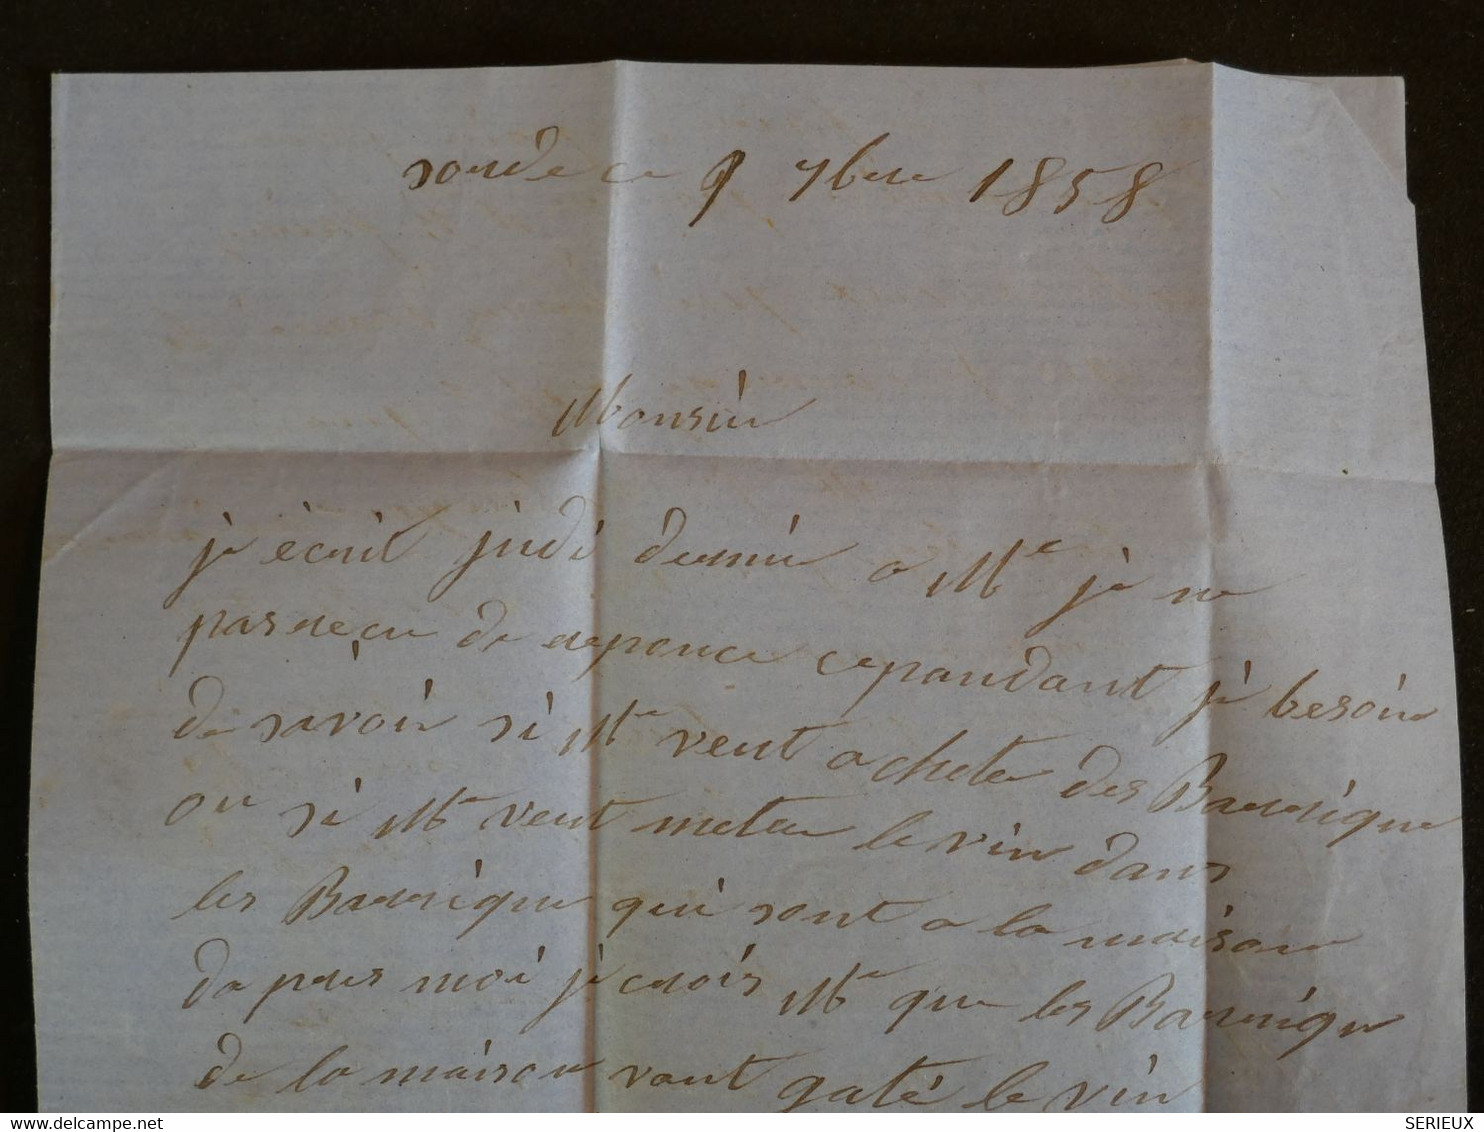 ce 9 7bre 1858
Monsieur
je écrit judi dernié a Mr je ne
pas recu de reponce cepandant jé besoin
de savoir si Mr veut acheter des Barrique
ou si Mr veut meter le vin dans
les Barrique qui sont a la maison
da pres moi je crois Mr que les Barrique
de la maison vont gaté le vin
SERIEUX